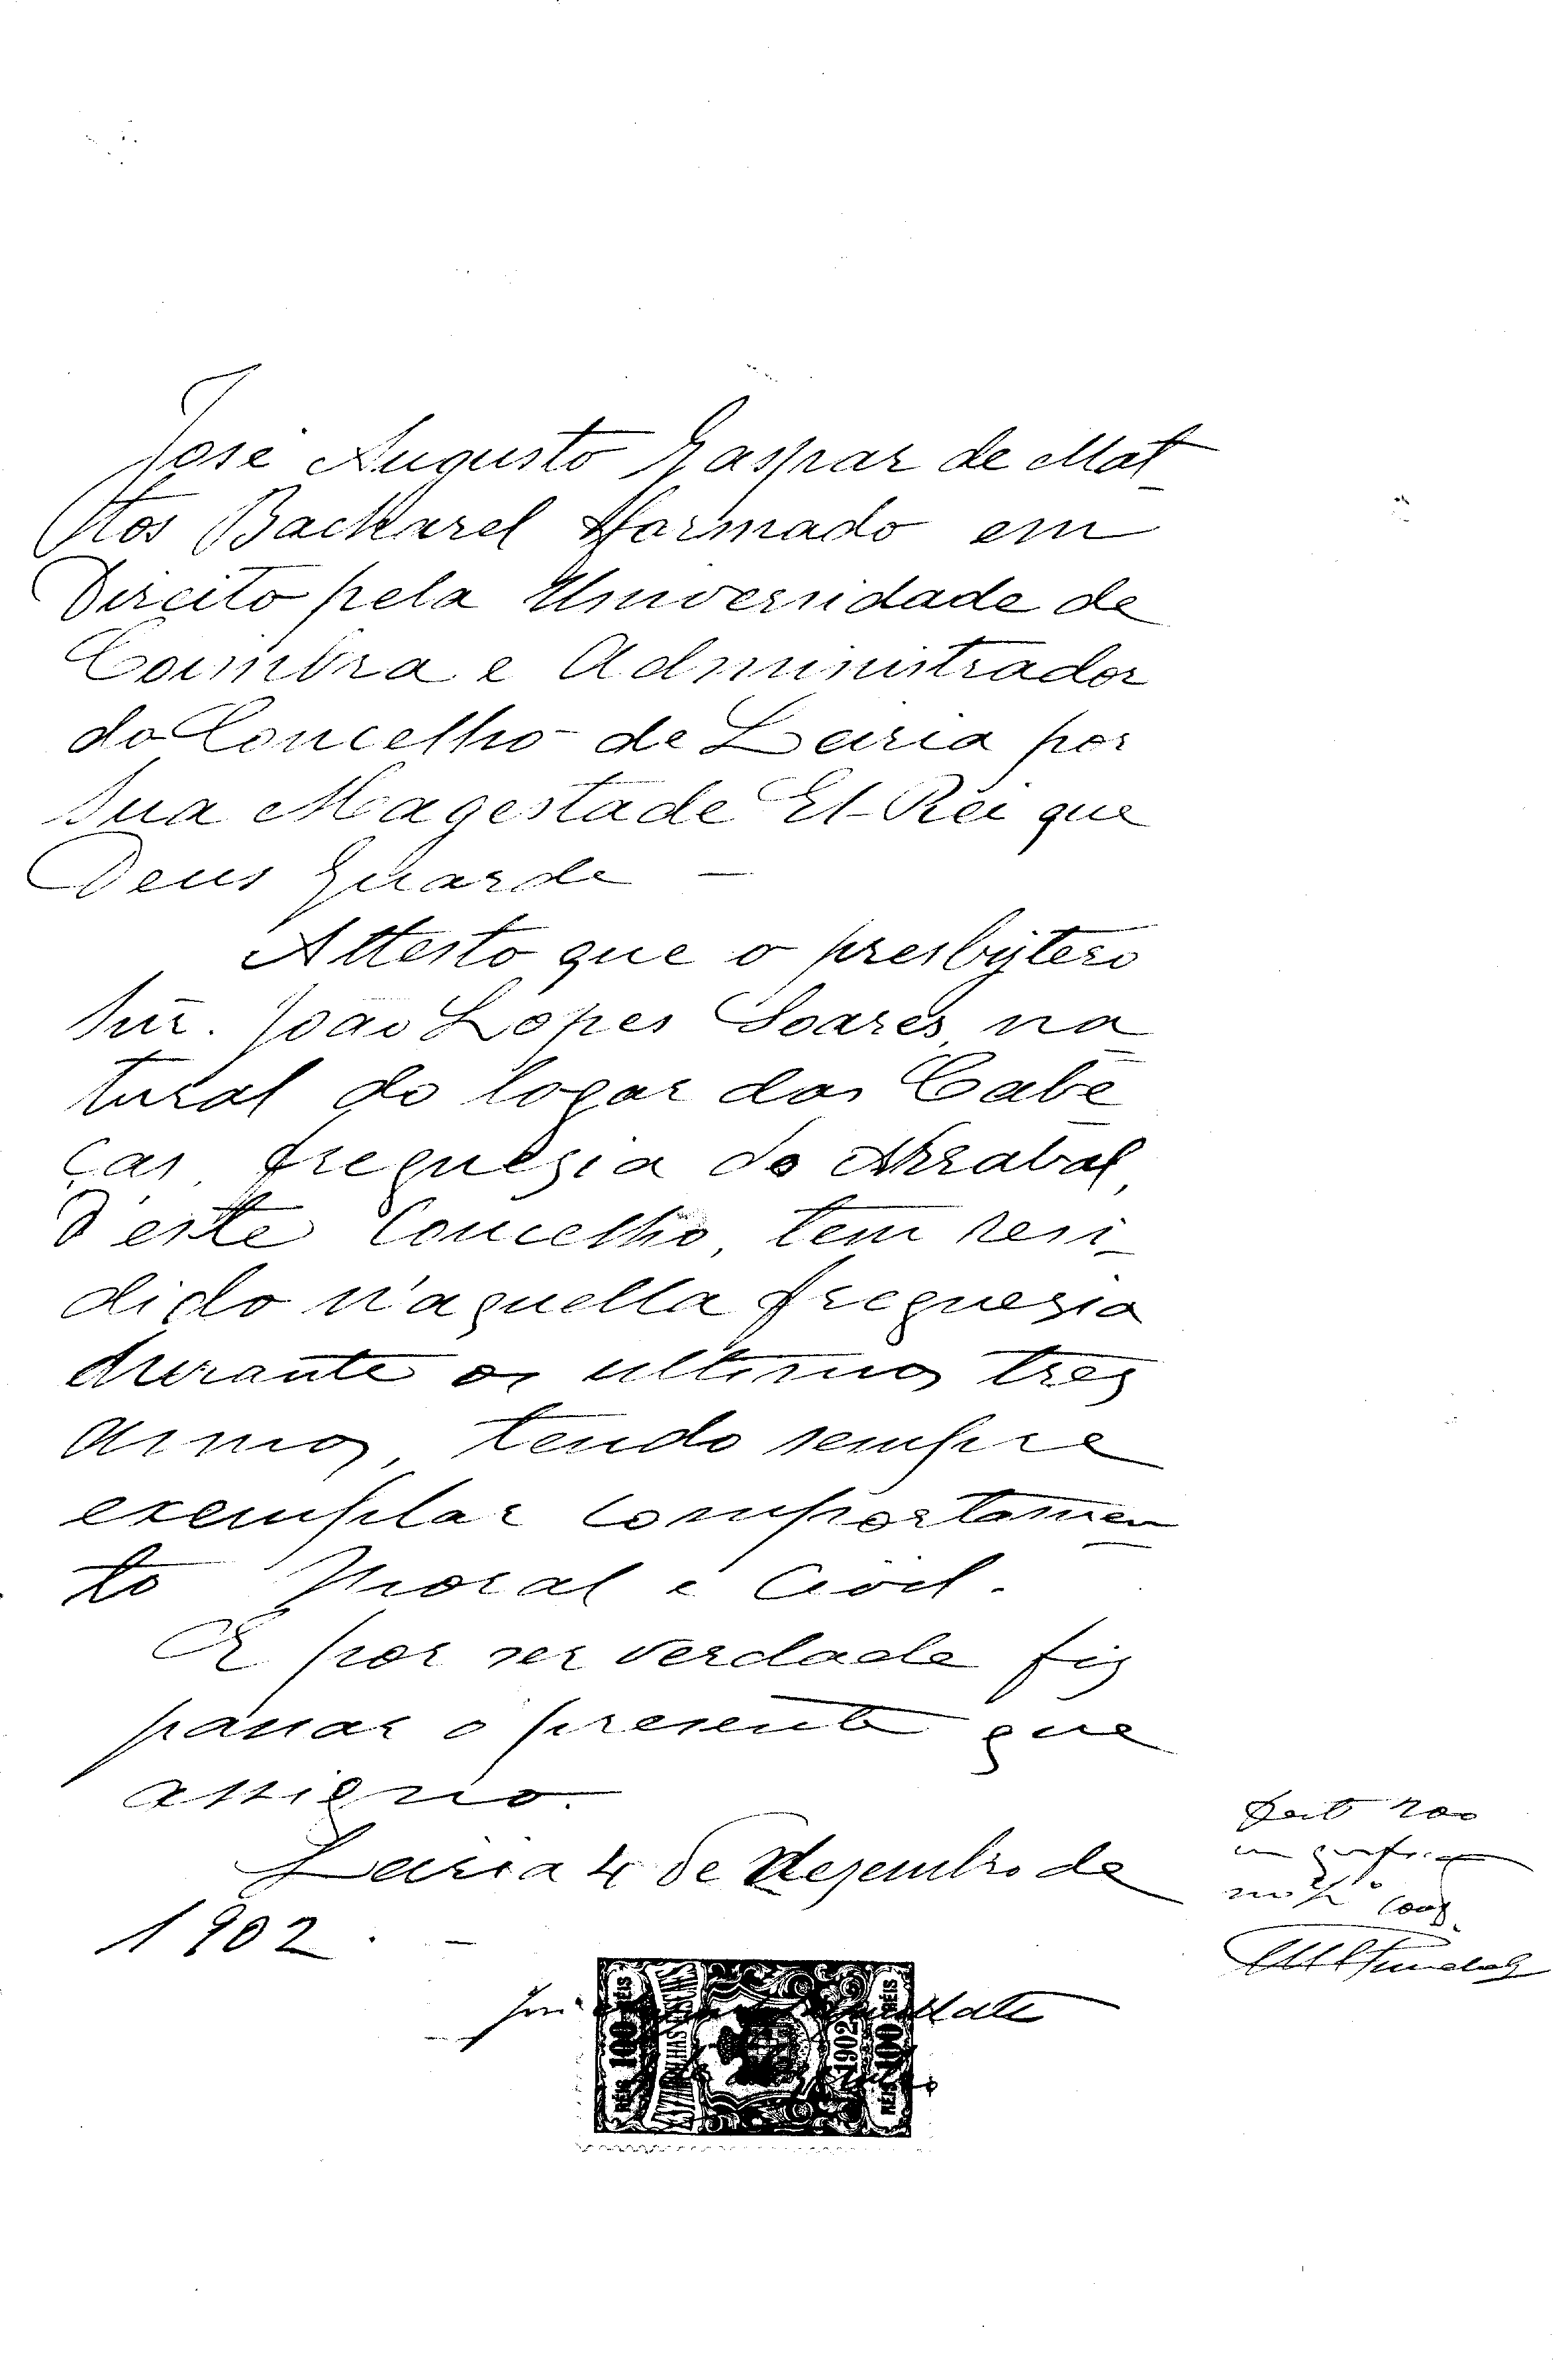 José Augusto Gaspar de Mat-
ttos Bacharel formado em
Direito pela Universidade de
Coimbra e Administrador
do Concelho de Leiria por
Sua Magestade El-Rei que
Deus Guarde —
Attesto que o presbytero
Snr. João Lopes Soares, na-
tural do logar das Cabe-
ças, freguezia do Arrabal,
d'este concelho, tem resi-
dido n'aquella freguezia
durante os ultimos tres
annos, tendo sempre
exemplar comportamen-
to moral e civil.
E por ser verdade fiz
passar o presente que
assigno.
Leiria 4 de Dezembro de
1902. —
José Matto
RÉIS 100 RÉIS
ESTAMPILHAS
1902
RÉIS 100 RÉIS